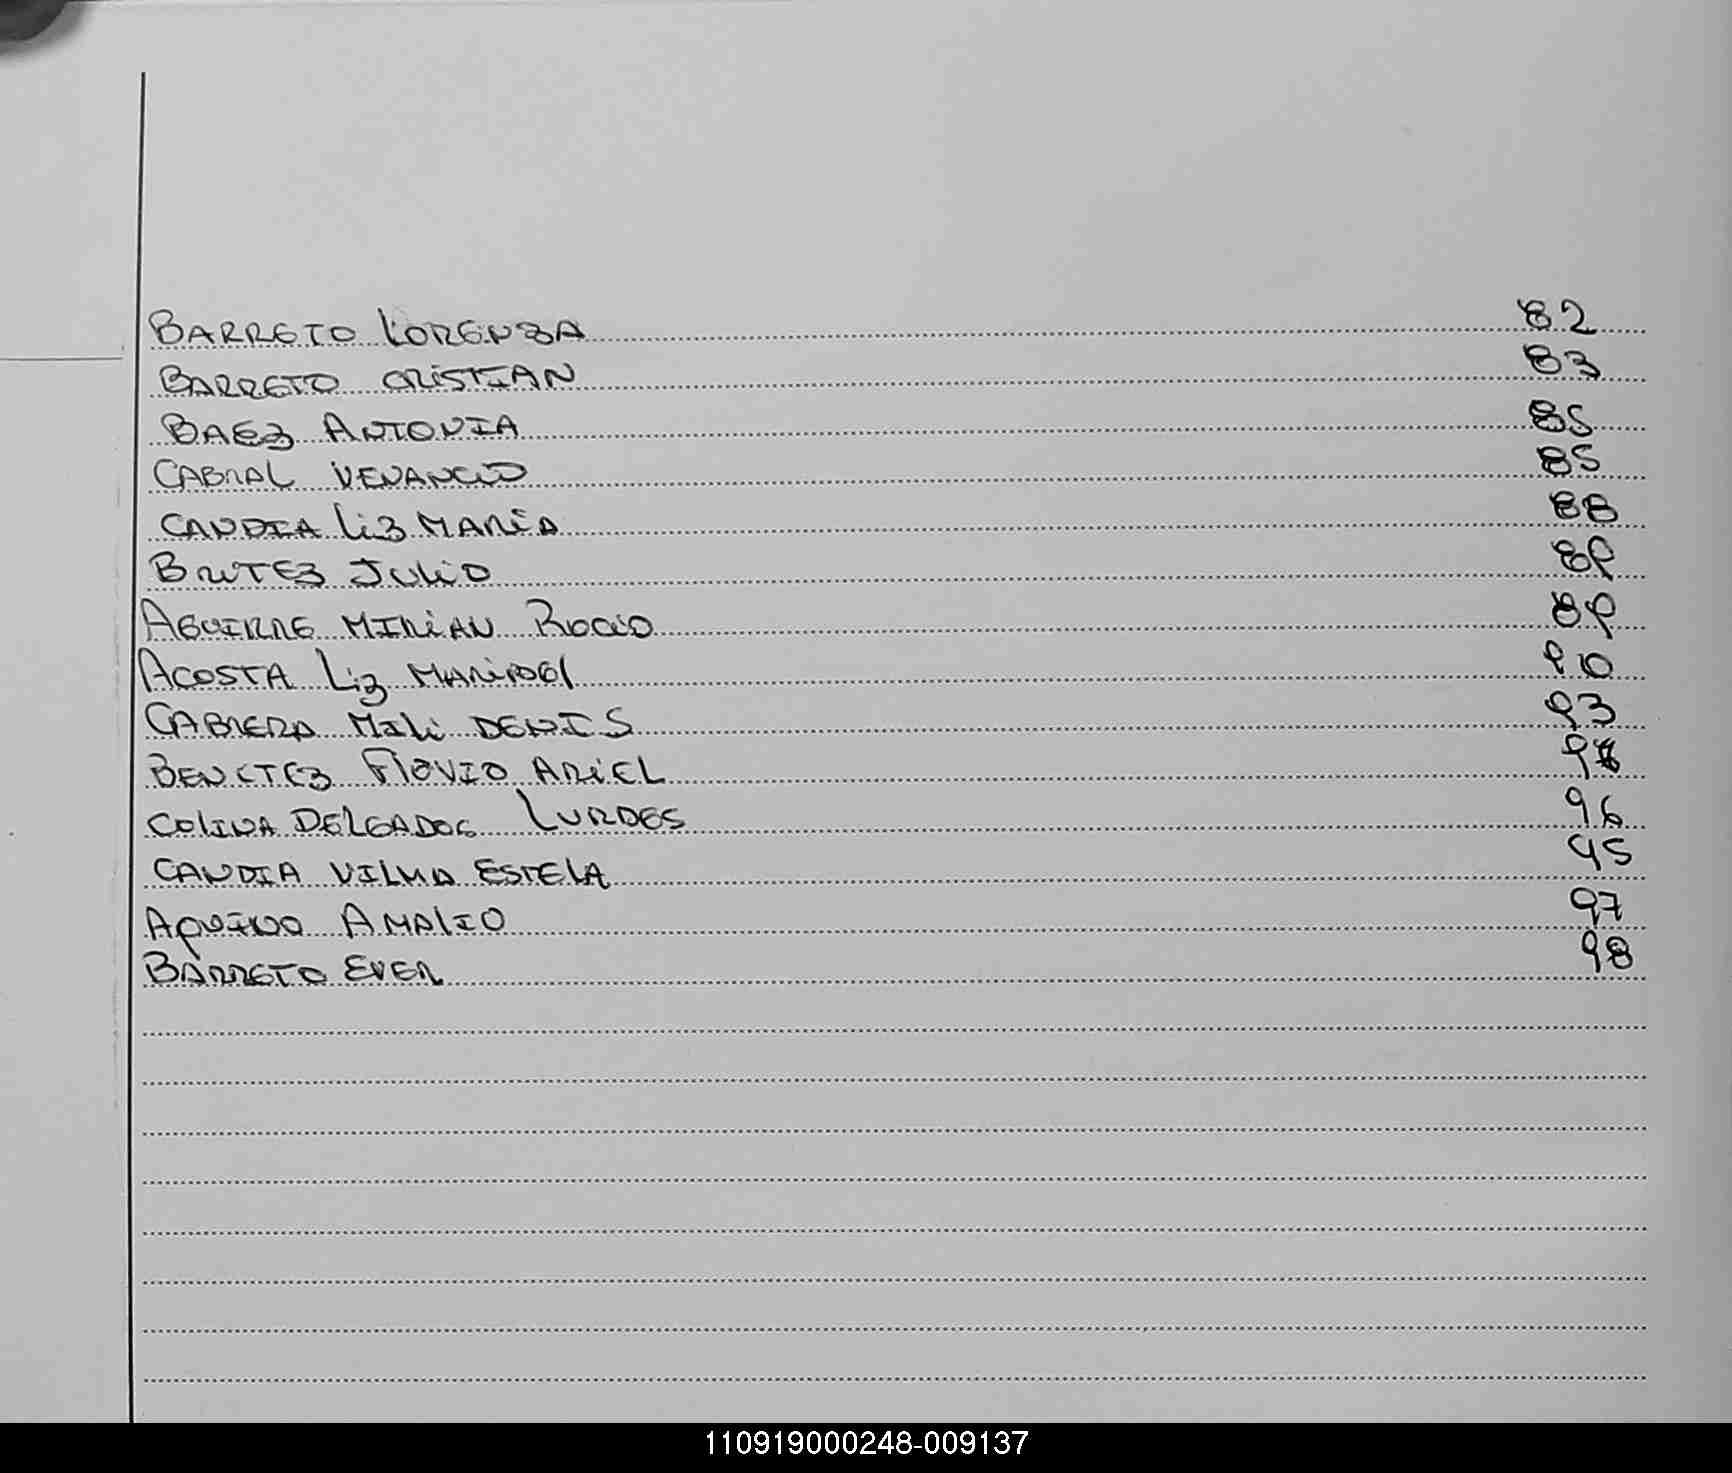 BARRETO LORENZA 82
BARRETO CRISTIAN 83
BAEZ ANTONIA 85
CABRAL VENANCIO 85
CANDIA LIZ MARÍA 88
BRITEZ JULIO 89
AGUIRRE MIRIAN ROCIO 89
ACOSTA LIZ MARIBEL 90
CABRERA MILI DENIS 93
BENITEZ FLAVIO ARIEL
COLINA DELGADO LURDES 96
CANDIA VILMA ESTELA 95
AQUINO AMALIO 97
BARRETO EVER 98
110919000248-009137